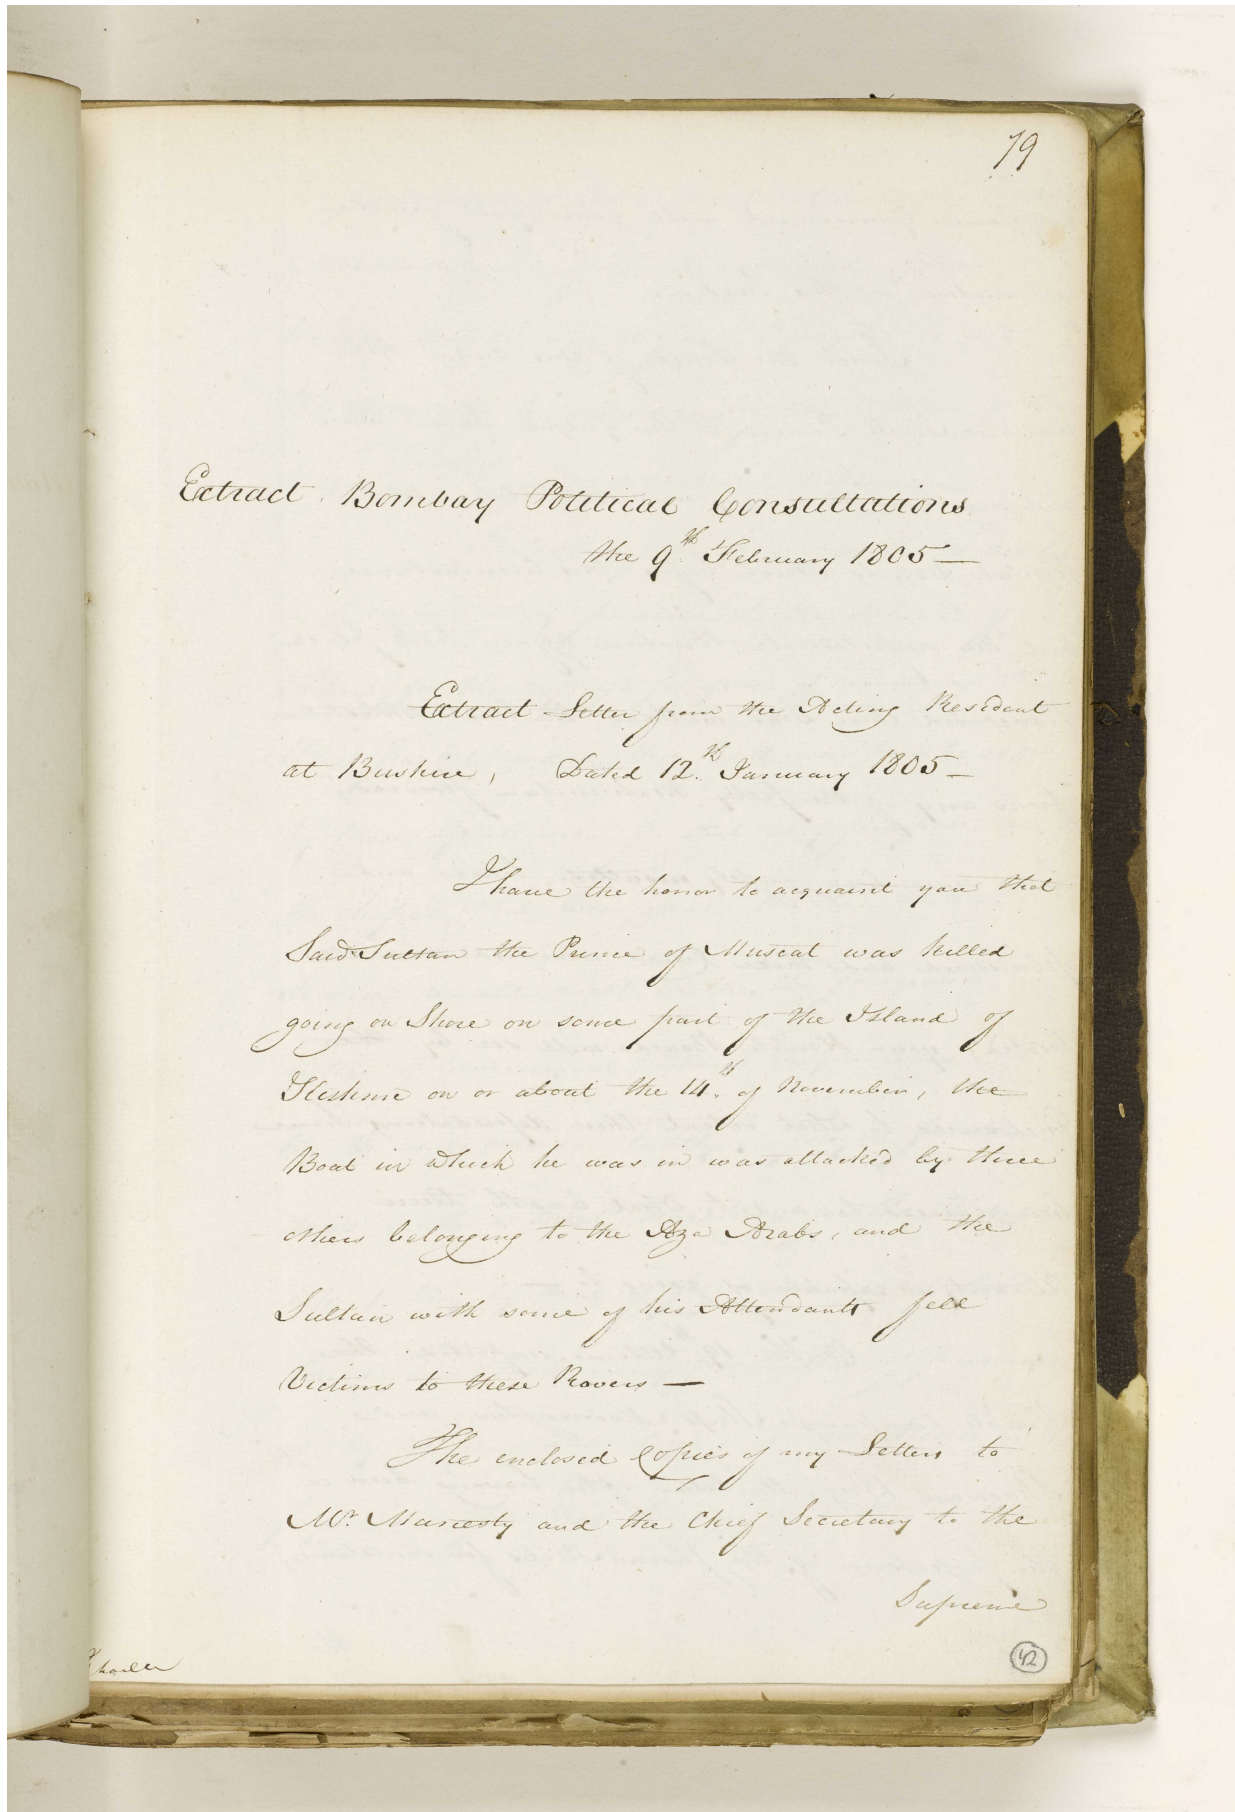 79
Extract Bombay Political Consultations
the 9th February 1805 —
Extract Letter from the Acting Resident
at Bushire, Dated 12th January 1805 —
I have the honor to acquaint you that
Said Sultan the Prince of Muscat was killed
going on Shore on some part of the Island of
Kishme on or about the 14th of November, the
Boat in which he was in was attacked by three
others belonging to the Aza Arabs, and the
Sultan with some of his Attendants fell
Victims to these Rovers —
The enclosed Copies of my Letters to
Mr. Manesty and the Chief Secretary to the
Supreme
42